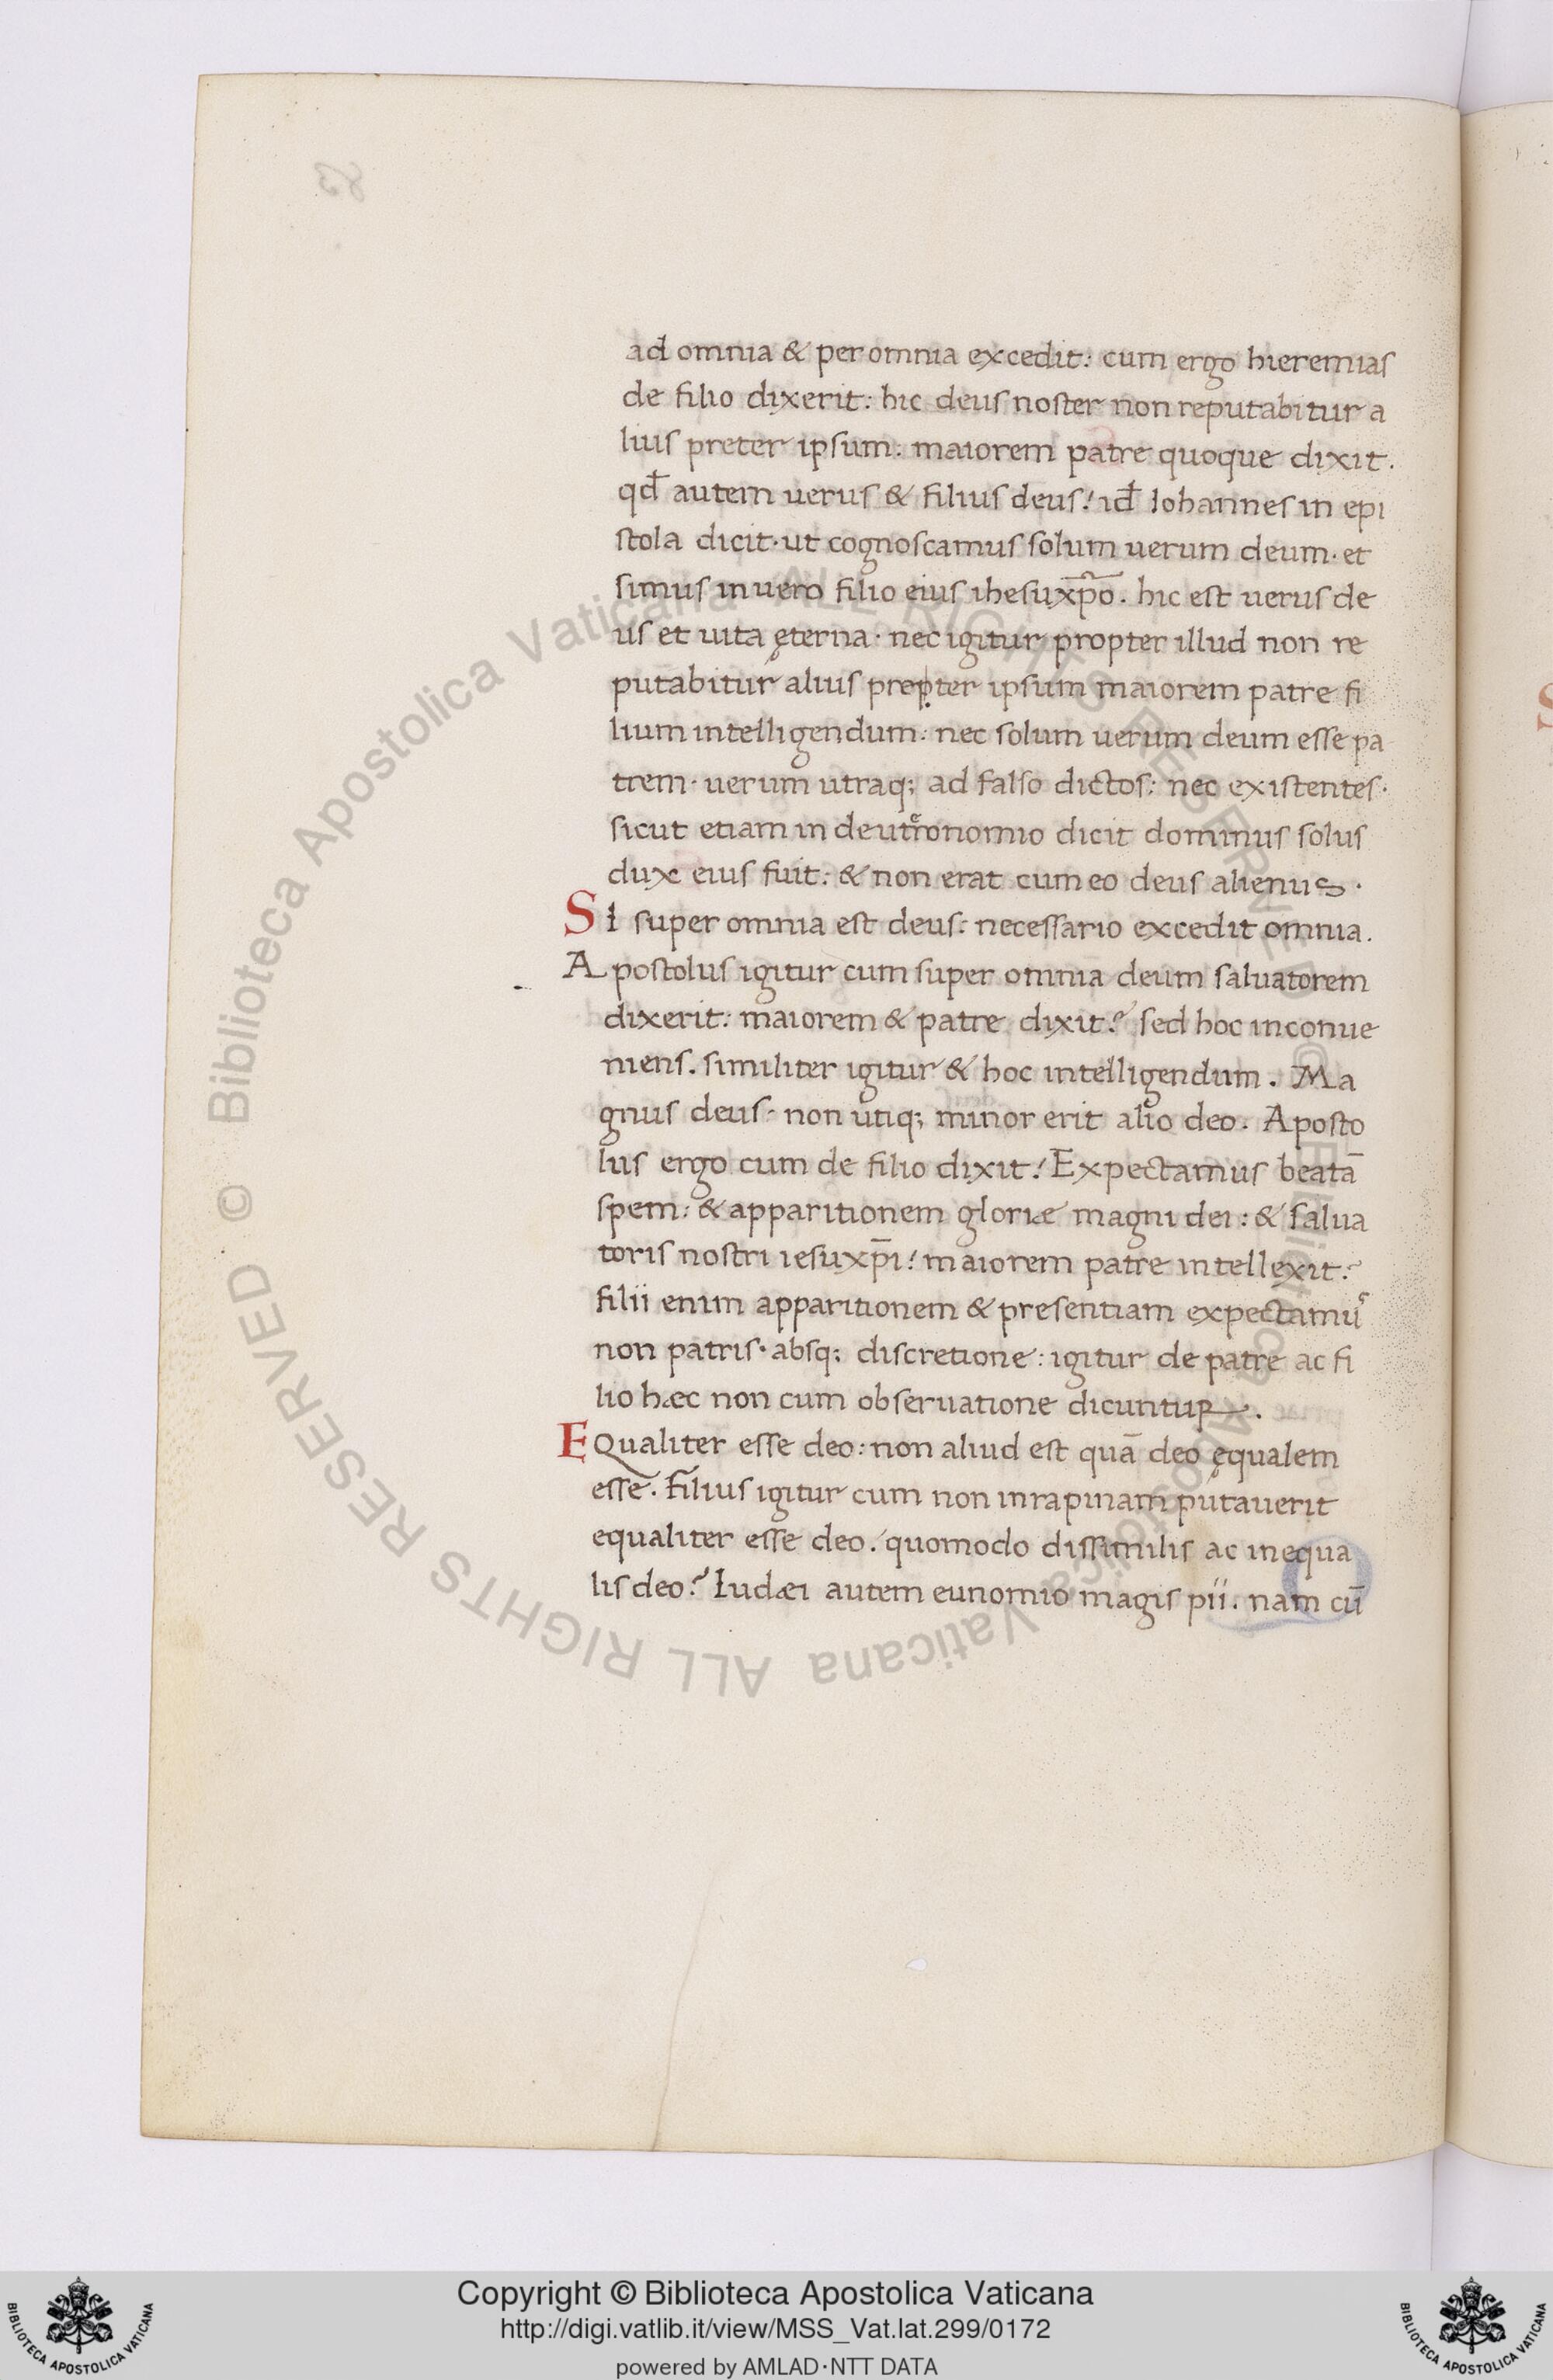 ad omnia & per omnia excedit: cum ergo hieremias
de filio dixerit: hic deus noster non reputabitur a
lius preter ipsum: maiorem patre quoque dixit.
qđ autem uerus & filius deus! iđ Iohannes in epi
stola dicit· ut cognoscamus solum uerum deum· et
simus in uero filio eius ihesu xp̄o. hic est uerus de
us et uita ęterna· nec igitur propter illud non re
putabitur alius prepter ipsum maiorem patre fi
lium intelligendum: nec solum uerum deum esse pa
trem· uerum utraq; ad falso dictos: nec existentes·
sicut etiam in deuteronomio dicit dominus solus
dux eius fuit: & non erat cum eo deus alienus·
SI super omnia est deus: necessario excedit omnia.
Apostolus igitur cum super omnia deum saluatorem
dixerit: maiorem & patre dixit? sed hoc inconue
niens. similiter igitur & hoc intelligendum. Ma
gnus deus· non utiq; minor erit alio deo. Aposto
lus ergo cum de filio dixit! Expectamus beatā
spem: & apparitionem gloriæ magni dei: & salua
toris nostri iesu xp̄i! maiorem patre intellexit?
filii enim apparitionem & presentiam expectamus
non patris· absq; discretione: igitur de patre ac fi
lio hæc non cum obseruatione dicuntur.
EQualiter esse deo: non aliud est quā deo ęqualem
esse. Filius igitur cum non in rapinam putauerit
equaliter esse deo! quomodo dissimilis ac inequa
lis deo? Iudæi autem eunomio magis pii. nam cū
© Biblioteca Apostolica Vaticana ALL RIGHTS RESERVED © Biblioteca Apostolica Vaticana ALL RIGHTS RESERVED
Copyright © Biblioteca Apostolica Vaticana
http://digi.vatlib.it/view/MSS_Vat.lat.299/0172
powered by AMLAD·NTT DATA
BIBLIOTECA APOSTOLICA VATICANA
BIBLIOTECA APOSTOLICA VATICANA